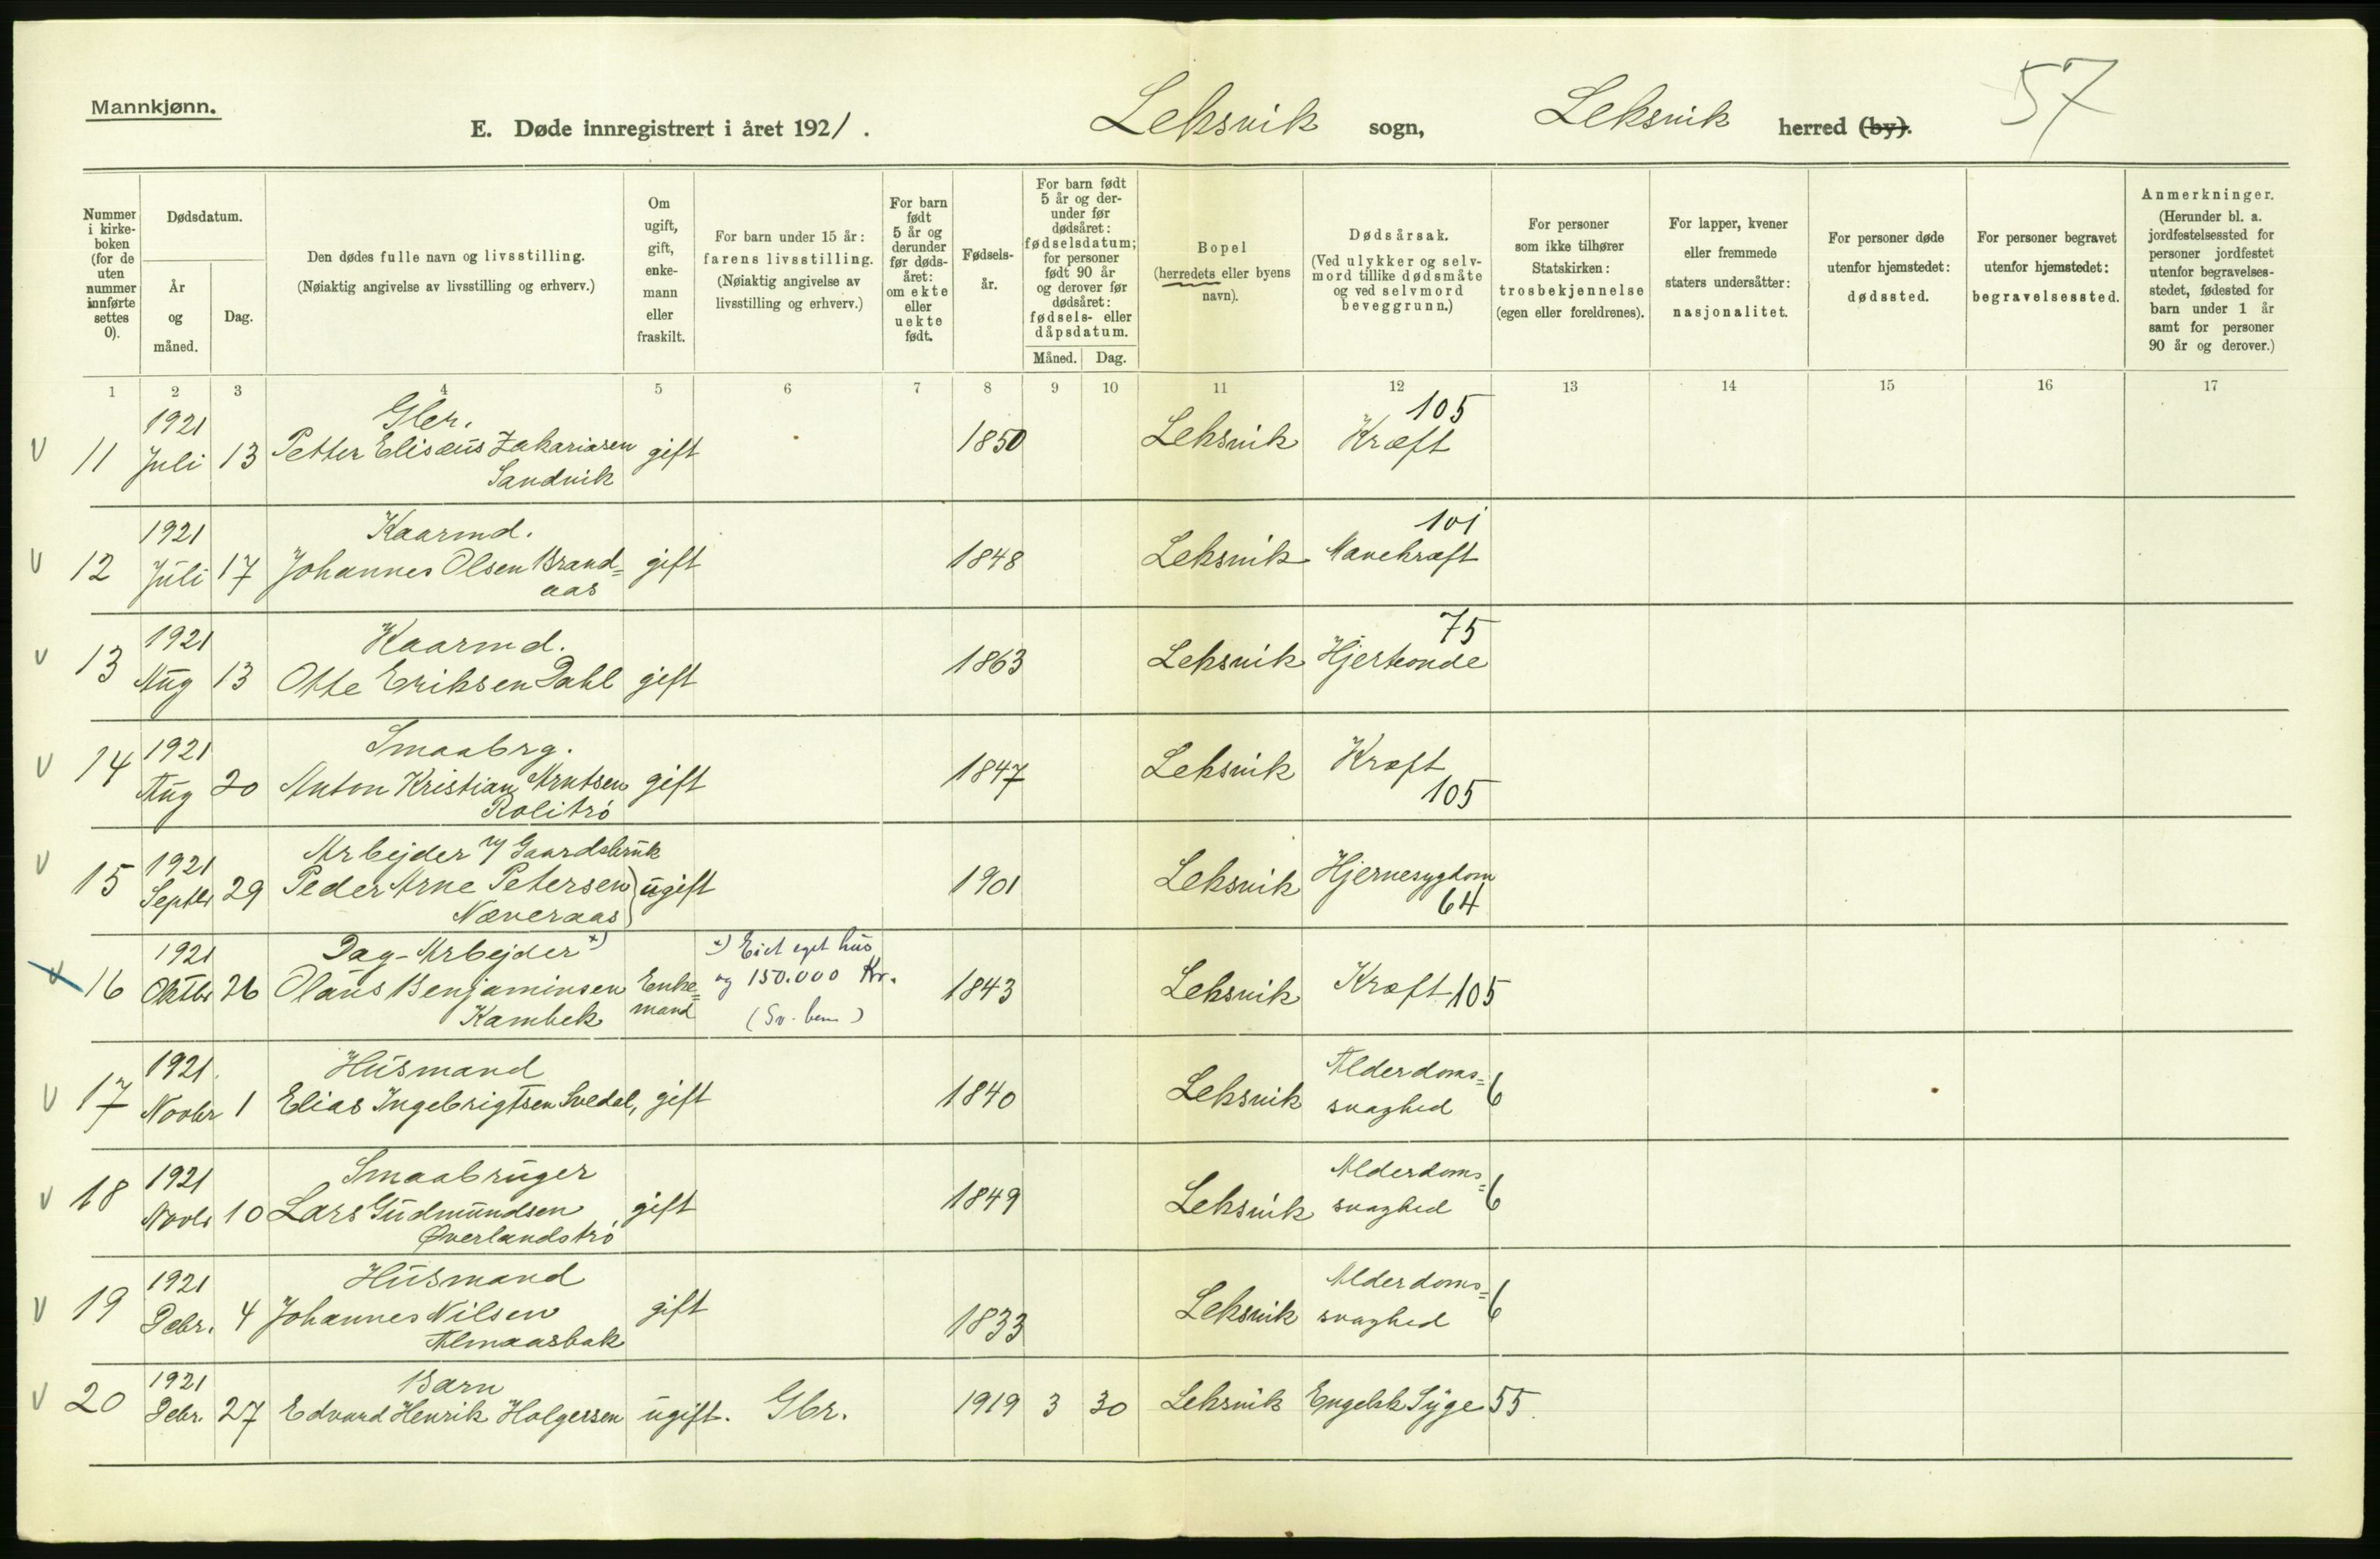 Mannkjønn.
E. Døde innregistrert i året 1921.
Leksvik sogn, Leksvik herred (by).
57
Nummer i kirkeboken (for de uten nummer innførte settes 0).
Dødsdatum.
År og måned.
Dag.
Den dødes fulle navn og livsstilling.
(Nøiaktig angivelse av livsstilling og erhverv.)
Om ugift, gift, enkemann eller fraskilt.
For barn under 15 år: farens livsstilling.
(Nøiaktig angivelse av livsstilling og erhverv.)
For barn født 5 år og derunder før dødsåret: om ekte eller uekte født.
Fødselsår.
For barn født 5 år og derunder før dødsåret: fødselsdatum; for personer født 90 år og derover før dødsåret: fødsels- eller dåpsdatum.
Måned.
Dag.
Bopel
(herredets eller byens navn).
Dødsårsak.
(Ved ulykker og selvmord tillike dødsmåte og ved selvmord beveggrunn.)
For personer som ikke tilhører Statskirken: trosbekjennelse (egen eller foreldrenes).
For lapper, kvener eller fremmede staters undersåtter: nasjonalitet.
For personer døde utenfor hjemstedet: dødssted.
For personer begravet utenfor hjemstedet: begravelsessted.
Anmerkninger.
(Herunder bl. a. jordfestelsessted for personer jordfestet utenfor begravelsesstedet, fødested for barn under 1 år samt for personer 90 år og derover.)
1 2 3 4 5 6 7 8 9 10 11 12 13 14 15 16 17
1921 Gbr. 105
V 11 Juli 13 Petter Elisæus Zakariasen gift 1850 Leksvik Kræft
Sandvik
1921 Kaarmd. 101
V 12 Juli 17 Johannes Olsen Brand= gift 1848 Leksvik Mavekræft
aas
1921 Kaarmd. 75
V 13 Aug 13 Otte Eriksen Dahl gift 1863 Leksvik Hjerteonde
1921 Smaabrg.
V 14 Aug 20 Anton Kristian Arntsen gift 1847 Leksvik Kræft
Rolitrø 105
1921 Arbejder v/ Gaardsbruk
V 15 Septbr 29 Peder Arne Petersen ugift 1901 Leksvik Hjernesygdom
Næveraas 64
1921 Dag-Arbejder x) x) Eiet eget hus
V 16 Oktbr 26 Olaus Benjaminsen Enke= og 150.000 Kr. 1843 Leksvik Kræft 105
Kambek mand (Sv. bem)
1921 Husmand Alderdoms=
V 17 Novbr 1 Elias Ingebrigtsen Svedal, gift 1840 Leksvik svaghed 6
1921 Smaabruger Alderdoms=
V 18 Novbr 10 Lars Gudmundsen gift 1849 Leksvik svaghed 6
Øverlandstrø
1921 Husmand Alderdoms=
V 19 Debr. 4 Johannes Nilsen gift 1833 Leksvik svaghed 6
Almaasbak
1921 Barn
V 20 Debr. 27 Edvard Henrik Holgersen ugift. Gbr. 1919 3 30 Leksvik Engelsk Syge 55